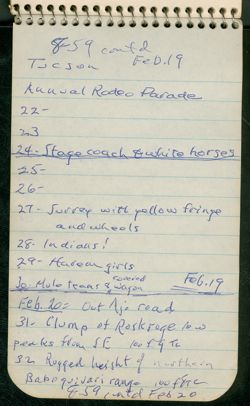 8-59 contd
Tucson Feb. 19
Annual Rodeo Parade
22-
23
24- Stage coach & white horses
25-
26-
27- Surrey with yellow fringe
and wheels
28- Indians!
29- Harem girls
30- Mule teams & covered wagon Feb. 19
Feb. 20 = Out Ajo road
31- Clump of Roskruge low
peaks from SE 100 f
32- Rugged height of northern
Baboquivari range 100
9-59 contd Feb 20